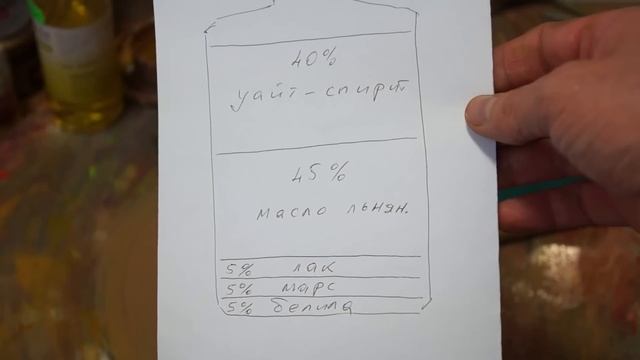 40%
уайт-спирит
45%
масло льнян.
5% лак
5% марс
5% белила